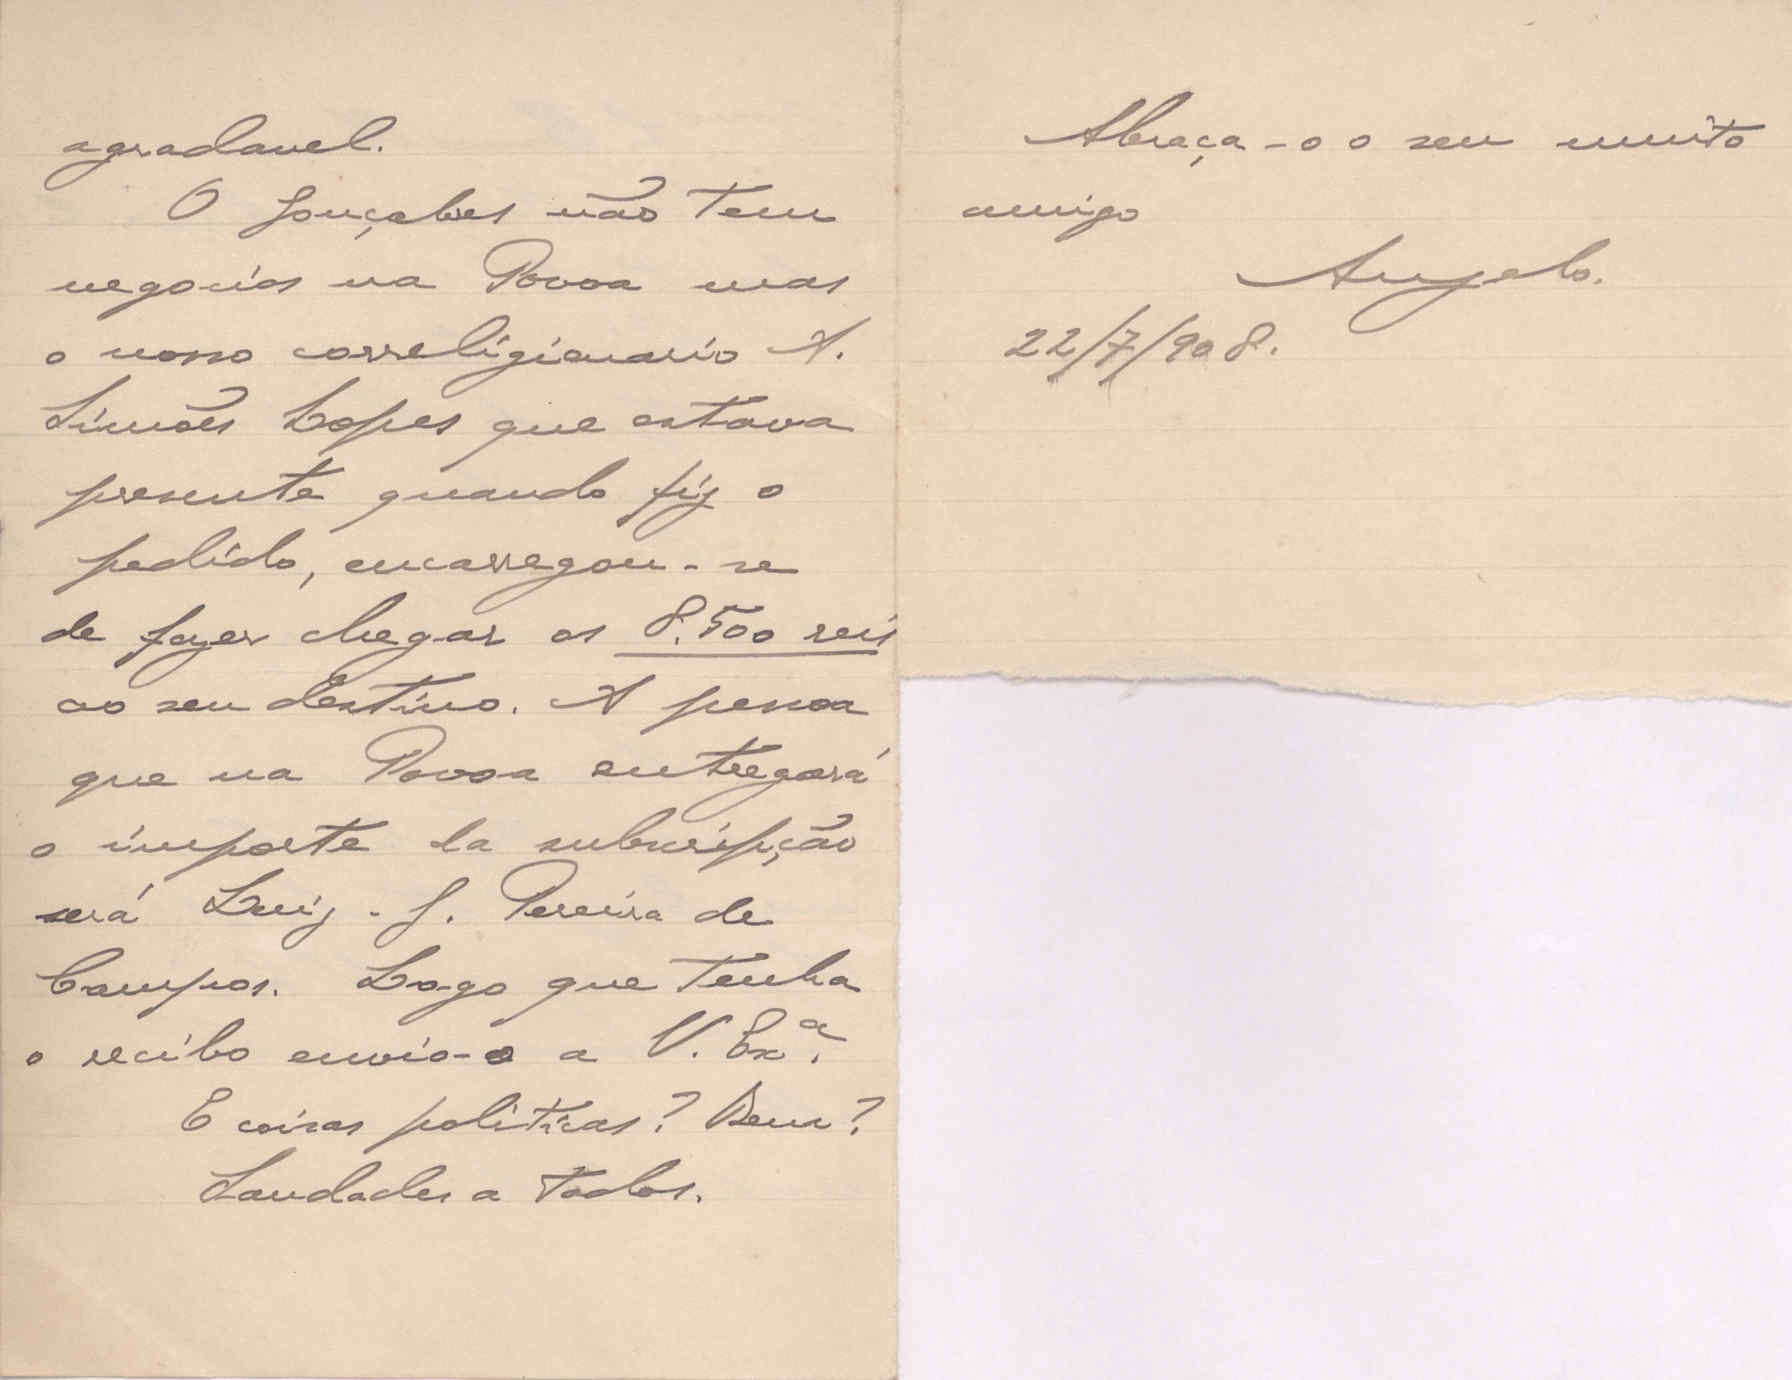 agradavel.
O Gonçalves não tem
negocios na Povoa mas
o nosso correligionario A.
Simões Lopes que estava
presente quando fiz o
pedido, encarregou-se
de fazer chegar os 8.500 reis
ao seu destino. A pessoa
que na Povoa entregará
o importe da subscripção
será Luiz - J. Pereira de
Campos. Logo que tenha
o recibo envio-o a V. Exª.
E coisas politicas? Bem?
Saudades a todos.
Abraça-o o seu muito
amigo
Angelo.
22/7/908.